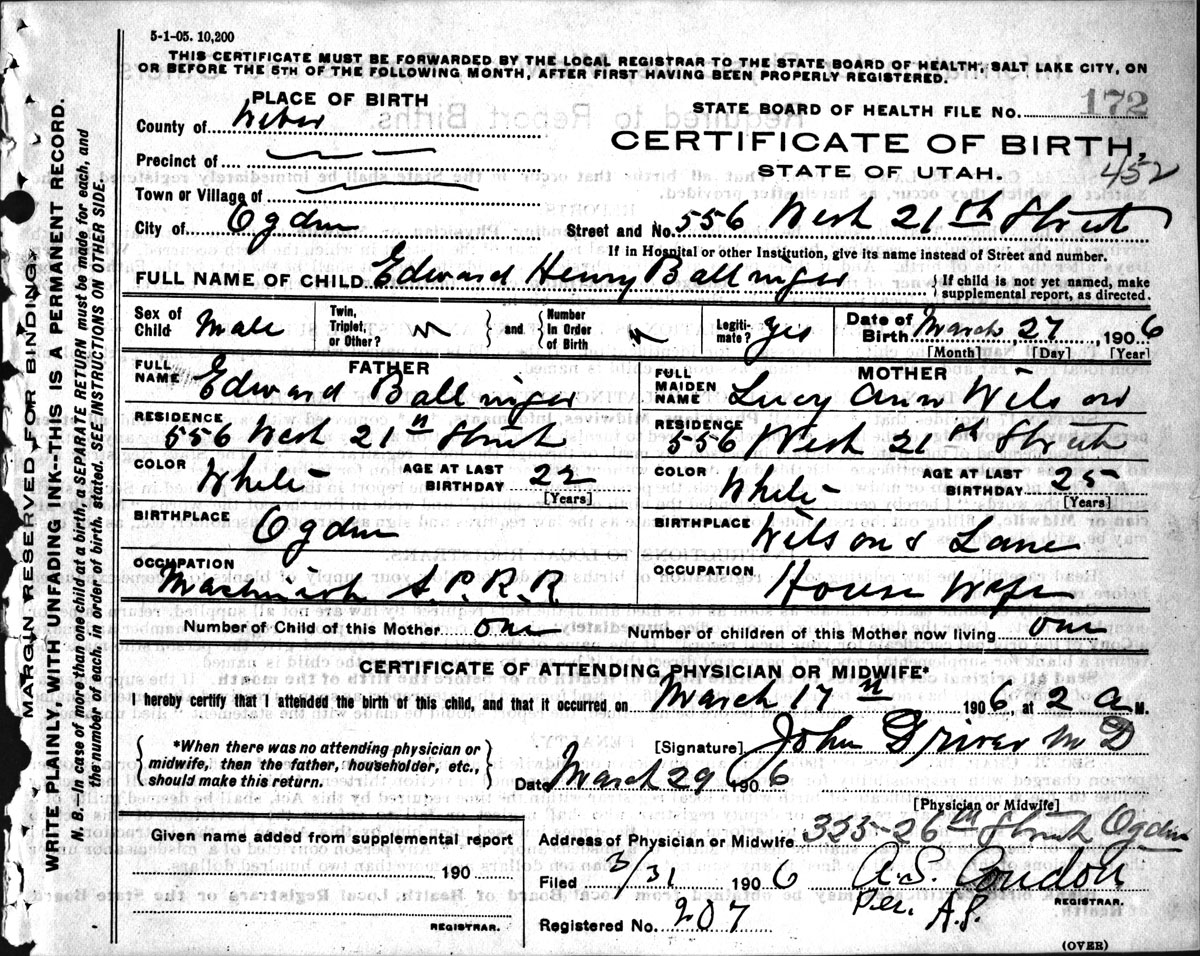 5-1-05. 10,200
THIS CERTIFICATE MUST BE FORWARDED BY THE LOCAL REGISTRAR TO THE STATE BOARD OF HEALTH, SALT LAKE CITY, ON
OR BEFORE THE 5TH OF THE FOLLOWING MONTH, AFTER FIRST HAVING BEEN PROPERLY REGISTERED.
PLACE OF BIRTH
STATE BOARD OF HEALTH FILE No. 172
County of Weber
CERTIFICATE OF BIRTH,
Precinct of
STATE OF UTAH. 452
Town or Village of
City of Ogden
Street and No. 556 West 21st Street
If in Hospital or other Institution, give its name instead of Street and number.
FULL NAME OF CHILD Edward Henry Ballinger
If child is not yet named, make supplemental report, as directed.
Sex of Child Male Twin, Triplet, or Other? and Number In Order of Birth Legitimate? yes Date of Birth March, 27, 1906
[Month] [Day] [Year]
FATHER
FULL NAME Edward Ballinger
MOTHER
FULL MAIDEN NAME Lucy Ann Wilson
RESIDENCE 556 West 21st Street
RESIDENCE 556 West 21st Street
COLOR White AGE AT LAST BIRTHDAY 22 [Years]
COLOR White AGE AT LAST BIRTHDAY 25 [Years]
BIRTHPLACE Ogden
BIRTHPLACE Wilsons Lane
OCCUPATION Machinist S.P.R.R
OCCUPATION House Wife
Number of Child of this Mother one
Number of children of this Mother now living one
CERTIFICATE OF ATTENDING PHYSICIAN OR MIDWIFE*
I hereby certify that I attended the birth of this child, and that it occurred on March 17th 1906, at 2 a M.
*When there was no attending physician or midwife, then the father, householder, etc., should make this return.
[Signature] John Driver M D
Date March 29 1906
[Physician or Midwife]
Given name added from supplemental report
190
REGISTRAR.
Address of Physician or Midwife 335-26th Street Ogden
Filed 3/31 1906 A.S. Condon
Per. A.S. REGISTRAR.
Registered No. 207
(OVER)
MARGIN RESERVED FOR BINDING
WRITE PLAINLY, WITH UNFADING INK--THIS IS A PERMANENT RECORD.
N. B.--In case of more than one child at a birth, a SEPARATE RETURN must be made for each, and
the number of each, in order of birth, stated. SEE INSTRUCTIONS ON OTHER SIDE.